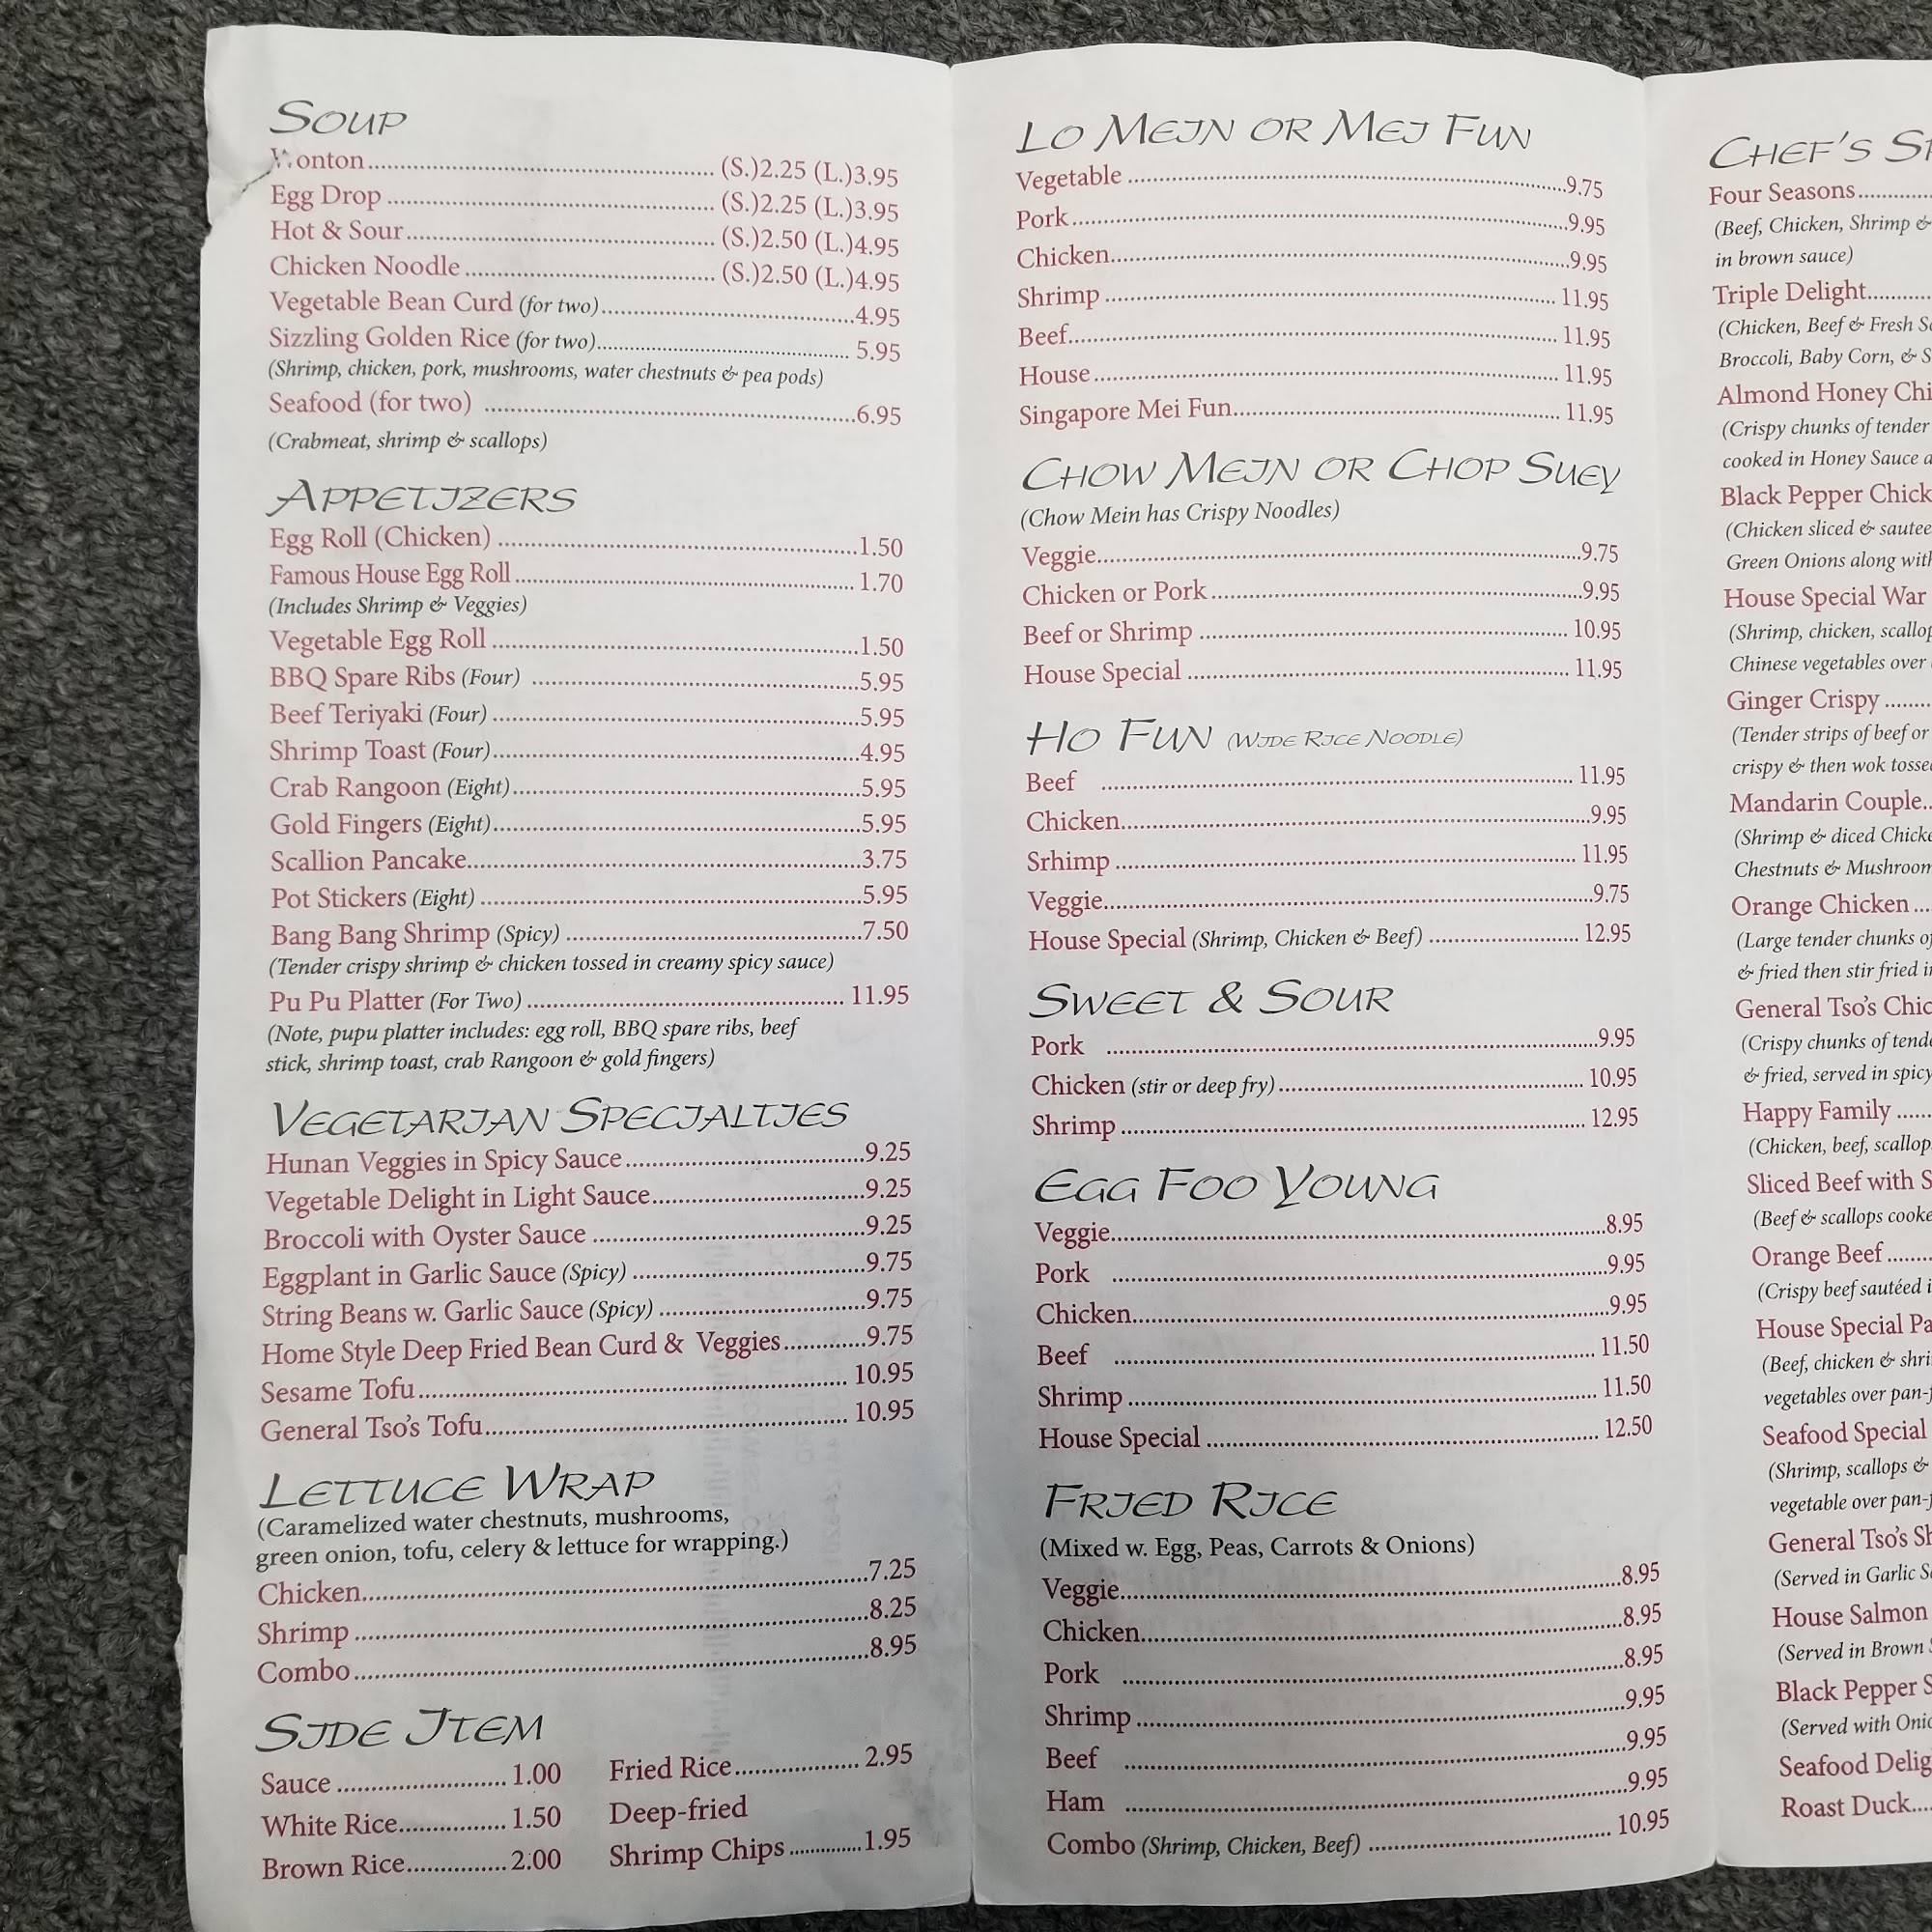 SOUP
Wonton (S.)2.25 (L.)3.95
Egg Drop (S.)2.25 (L.)3.95
Hot & Sour (S.)2.50 (L.)4.95
Chicken Noodle (S.)2.50 (L.)4.95
Vegetable Bean Curd (for two) 4.95
Sizzling Golden Rice (for two) 5.95
(Shrimp, chicken, pork, mushrooms, water chestnuts & pea pods)
Seafood (for two) 6.95
(Crabmeat, shrimp & scallops)
APPETIZERS
Egg Roll (Chicken) 1.50
Famous House Egg Roll 1.70
(Includes Shrimp & Veggies)
Vegetable Egg Roll 1.50
BBQ Spare Ribs (Four) 5.95
Beef Teriyaki (Four) 5.95
Shrimp Toast (Four) 4.95
Crab Rangoon (Eight) 5.95
Gold Fingers (Eight) 5.95
Scallion Pancake 3.75
Pot Stickers (Eight) 5.95
Bang Bang Shrimp (Spicy) 7.50
(Tender crispy shrimp & chicken tossed in creamy spicy sauce)
Pu Pu Platter (For Two) 11.95
(Note, pupu platter includes: egg roll, BBQ spare ribs, beef
stick, shrimp toast, crab Rangoon & gold fingers)
VEGETARIAN SPECIALTIES
Hunan Veggies in Spicy Sauce 9.25
Vegetable Delight in Light Sauce 9.25
Broccoli with Oyster Sauce 9.25
Eggplant in Garlic Sauce (Spicy) 9.75
String Beans w. Garlic Sauce (Spicy) 9.75
Home Style Deep Fried Bean Curd & Veggies 9.75
Sesame Tofu 10.95
General Tso's Tofu 10.95
LETTUCE WRAP
(Caramelized water chestnuts, mushrooms,
green onion, tofu, celery & lettuce for wrapping.)
Chicken 7.25
Shrimp 8.25
Combo 8.95
SIDE ITEM
Sauce 1.00
White Rice 1.50
Brown Rice 2.00
Fried Rice 2.95
Deep-fried
Shrimp Chips 1.95
LO MEIN OR MEI FUN
Vegetable 9.75
Pork 9.95
Chicken 9.95
Shrimp 11.95
Beef 11.95
House 11.95
Singapore Mei Fun 11.95
CHOW MEIN OR CHOP SUEY
(Chow Mein has Crispy Noodles)
Veggie 9.75
Chicken or Pork 9.95
Beef or Shrimp 10.95
House Special 11.95
HO FUN (WIDE RICE NOODLE)
Beef 11.95
Chicken 9.95
Srhimp 11.95
Veggie 9.75
House Special (Shrimp, Chicken & Beef) 12.95
SWEET & SOUR
Pork 9.95
Chicken (stir or deep fry) 10.95
Shrimp 12.95
EGG FOO YOUNG
Veggie 8.95
Pork 9.95
Chicken 9.95
Beef 11.50
Shrimp 11.50
House Special 12.50
FRIED RICE
(Mixed w. Egg, Peas, Carrots & Onions)
Veggie 8.95
Chicken 8.95
Pork 8.95
Shrimp 9.95
Beef 9.95
Ham 9.95
Combo (Shrimp, Chicken, Beef) 10.95
CHEF'S
Four Seasons
(Beef, Chicken, Shrimp &
in brown sauce)
Triple Delight
(Chicken, Beef & Fresh
Broccoli, Baby Corn, &
Almond Honey
(Crispy chunks of tender
cooked in Honey Sauce
Black Pepper
(Chicken sliced &
Green Onions along
House Special War
(Shrimp, chicken,
Chinese vegetables over
Ginger Crispy
(Tender strips of beef or
crispy & then wok
Mandarin Couple
(Shrimp & diced
Chestnuts &
Orange Chicken
(Large tender chunks
& fried then stir fried
General Tso's
(Crispy chunks of
& fried, served in
Happy Family
(Chicken, beef,
Sliced Beef with
(Beef & scallops
Orange Beef
(Crispy beef sautéed
House Special
(Beef, chicken &
vegetables over
Seafood Special
(Shrimp, scallops &
vegetable over
General Tso's
(Served in Garlic
House Salmon
(Served in Brown
Black Pepper
(Served with
Seafood
Roast Duck